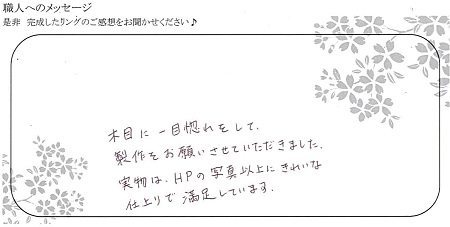 職人へのメッセージ
是非 完成したリングのご感想をお聞かせください♪
木目に一目惚れをして、
製作をお願いさせていただきました。
実物は、HPの写真以上にきれいな
仕上りで満足しています。